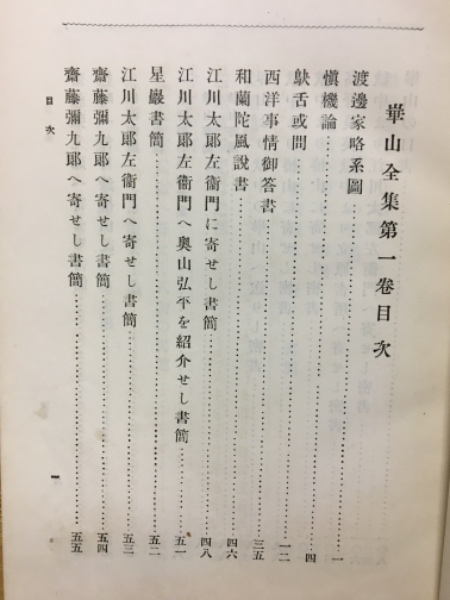 崋山全集第一卷目次
渡邊家略系圖……一
愼機論……四
鴃舌或問……一二
西洋事情御答書……三五
和蘭陀風說書……四六
江川太郎左衞門に寄せし書簡……四八
江川太郎左衞門へ奧山弘平を紹介せし書簡……五一
星巖書簡……五二
江川太郎左衞門へ寄せし書簡……五三
齋藤彌九郎へ寄せし書簡……五四
齋藤彌九郎へ寄せし書簡……五五
目次
一